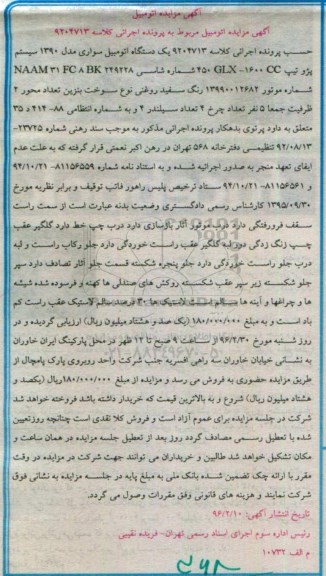 آگهی مزایده اتومبیل
آگهی مزایده اتومبیل مربوط به پرونده اجرائی کلاسه ۹۲۰۴۷۱۳
حسب پرونده اجرائی کلاسه ۹۲۰۴۷۱۳ یک دستگاه اتومبیل سواری مدل ۱۳۹۰ سیستم
پژو تیپ ۴۵۰ GLX -۱۶۰۰ CC شماره شاسی NAAM ۳۱ FC ۸ BK ۲۴۹۲۲۸
شماره موتور ۱۳۹۹۰۰۱۲۶۸۲ رنگ سفید روغنی نوع سوخت بنزین تعداد محور ۲
ظرفیت جمعا ۵ نفر تعداد چرخ ۴ تعداد سیلندر ۴ و به شماره انتظامی ۸۸- ۴۱۲ د ۳۵
متعلق به داود پرتوی بدهکار پرونده اجرائی مذکور به موجب سند رهنی شماره ۲۳۷۲۵-
۹۲/۰۸/۱۳ تنظیمی دفترخانه ۵۶۸ تهران در رهن اکبر نعمتی قرار گرفته که به علت عدم
ایفای تعهد منجر به صدور اجرائیه شده و به استناد نامه شماره ۸۱۱۵۶۵۵۹- ۹۴/۱۰/۲۱
و ۸۱۱۵۶۵۶۱- ۹۴/۱۰/۲۱ ستاد ترخیص پلیس راهور فاتب توقیف و برابر نظریه مورخ
۱۳۹۵/۰۹/۳۰ کارشناس رسمی دادگستری وضعیت بدنه عبارت است از سمت راست
سقف فرورفتگی دارد درب موتور آثار بازسازی دارد درب چپ خط دارد گلگیر عقب
چپ زنگ زدگی دور لبه گلگیر عقب راست خوردگی دارد جلو رکاب راست و لبه
درب جلو راست خوردگی دارد جلو پنجره شکسته قسمت جلو آثار تصادف دارد سپر
جلو شکسته زیر سپر عقب شکسته روکش های صندلی ها کهنه و فرسوده شده شیشه
ها و چراغها و آینه ها سالم است لاستیک ها ۳۰ درصد سالم لاستیک عقب راست کم
باد است و به مبلغ ۱۸۰/۰۰۰/۰۰۰ (یک صد و هشتاد میلیون ریال) ارزیابی گردیده و در
روز شنبه مورخ ۹۶/۲/۳۰ از ساعت ۹ صبح تا ۱۲ ظهر در محل پارکینگ ایران خاوران
به نشانی خیابان خاوران سه راهی افسریه جنب شرکت واحد روبروی پارک پامچال از
طریق مزایده حضوری به فروش می رسد و مزایده از مبلغ ۱۸۰/۰۰۰/۰۰۰ ریال (یکصد و
هشتاد میلیون ریال) شروع و به بالاترین قیمت که خریدار داشته باشد فروخته خواهد شد
شرکت در جلسه مزایده برای عموم آزاد است و فروش کلا نقدی است چنانچه روز تعیین
شده با تعطیل رسمی مصادف گردد روز بعد از تعطیل جلسه مزایده در همان ساعت و
مکان تشکیل خواهد شد طالبین و خریداران می توانند جهت شرکت در مزایده در وقت
مقرر با ارائه چک تضمین شده بانک ملی به مبلغ پایه در جلسه مزایده به نشانی فوق
شرکت نمایند و هزینه های قانونی وفق مقررات وصول می گردد.
تاریخ انتشار آگهی: ۹۶/۲/۱۰
رئیس اداره سوم اجرای اسناد رسمی تهران- فریده نقیبی
م الف ۱۰۷۳۲